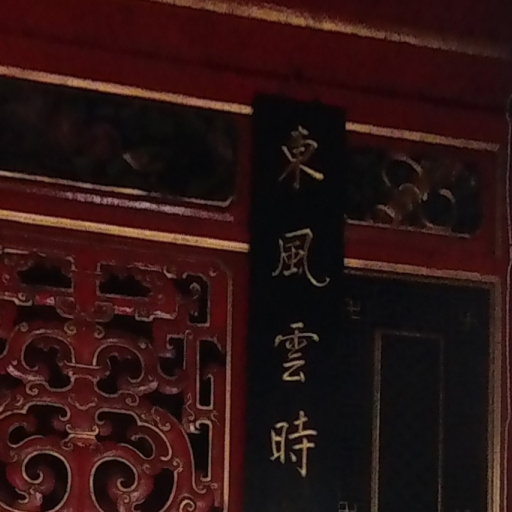 東風雲時